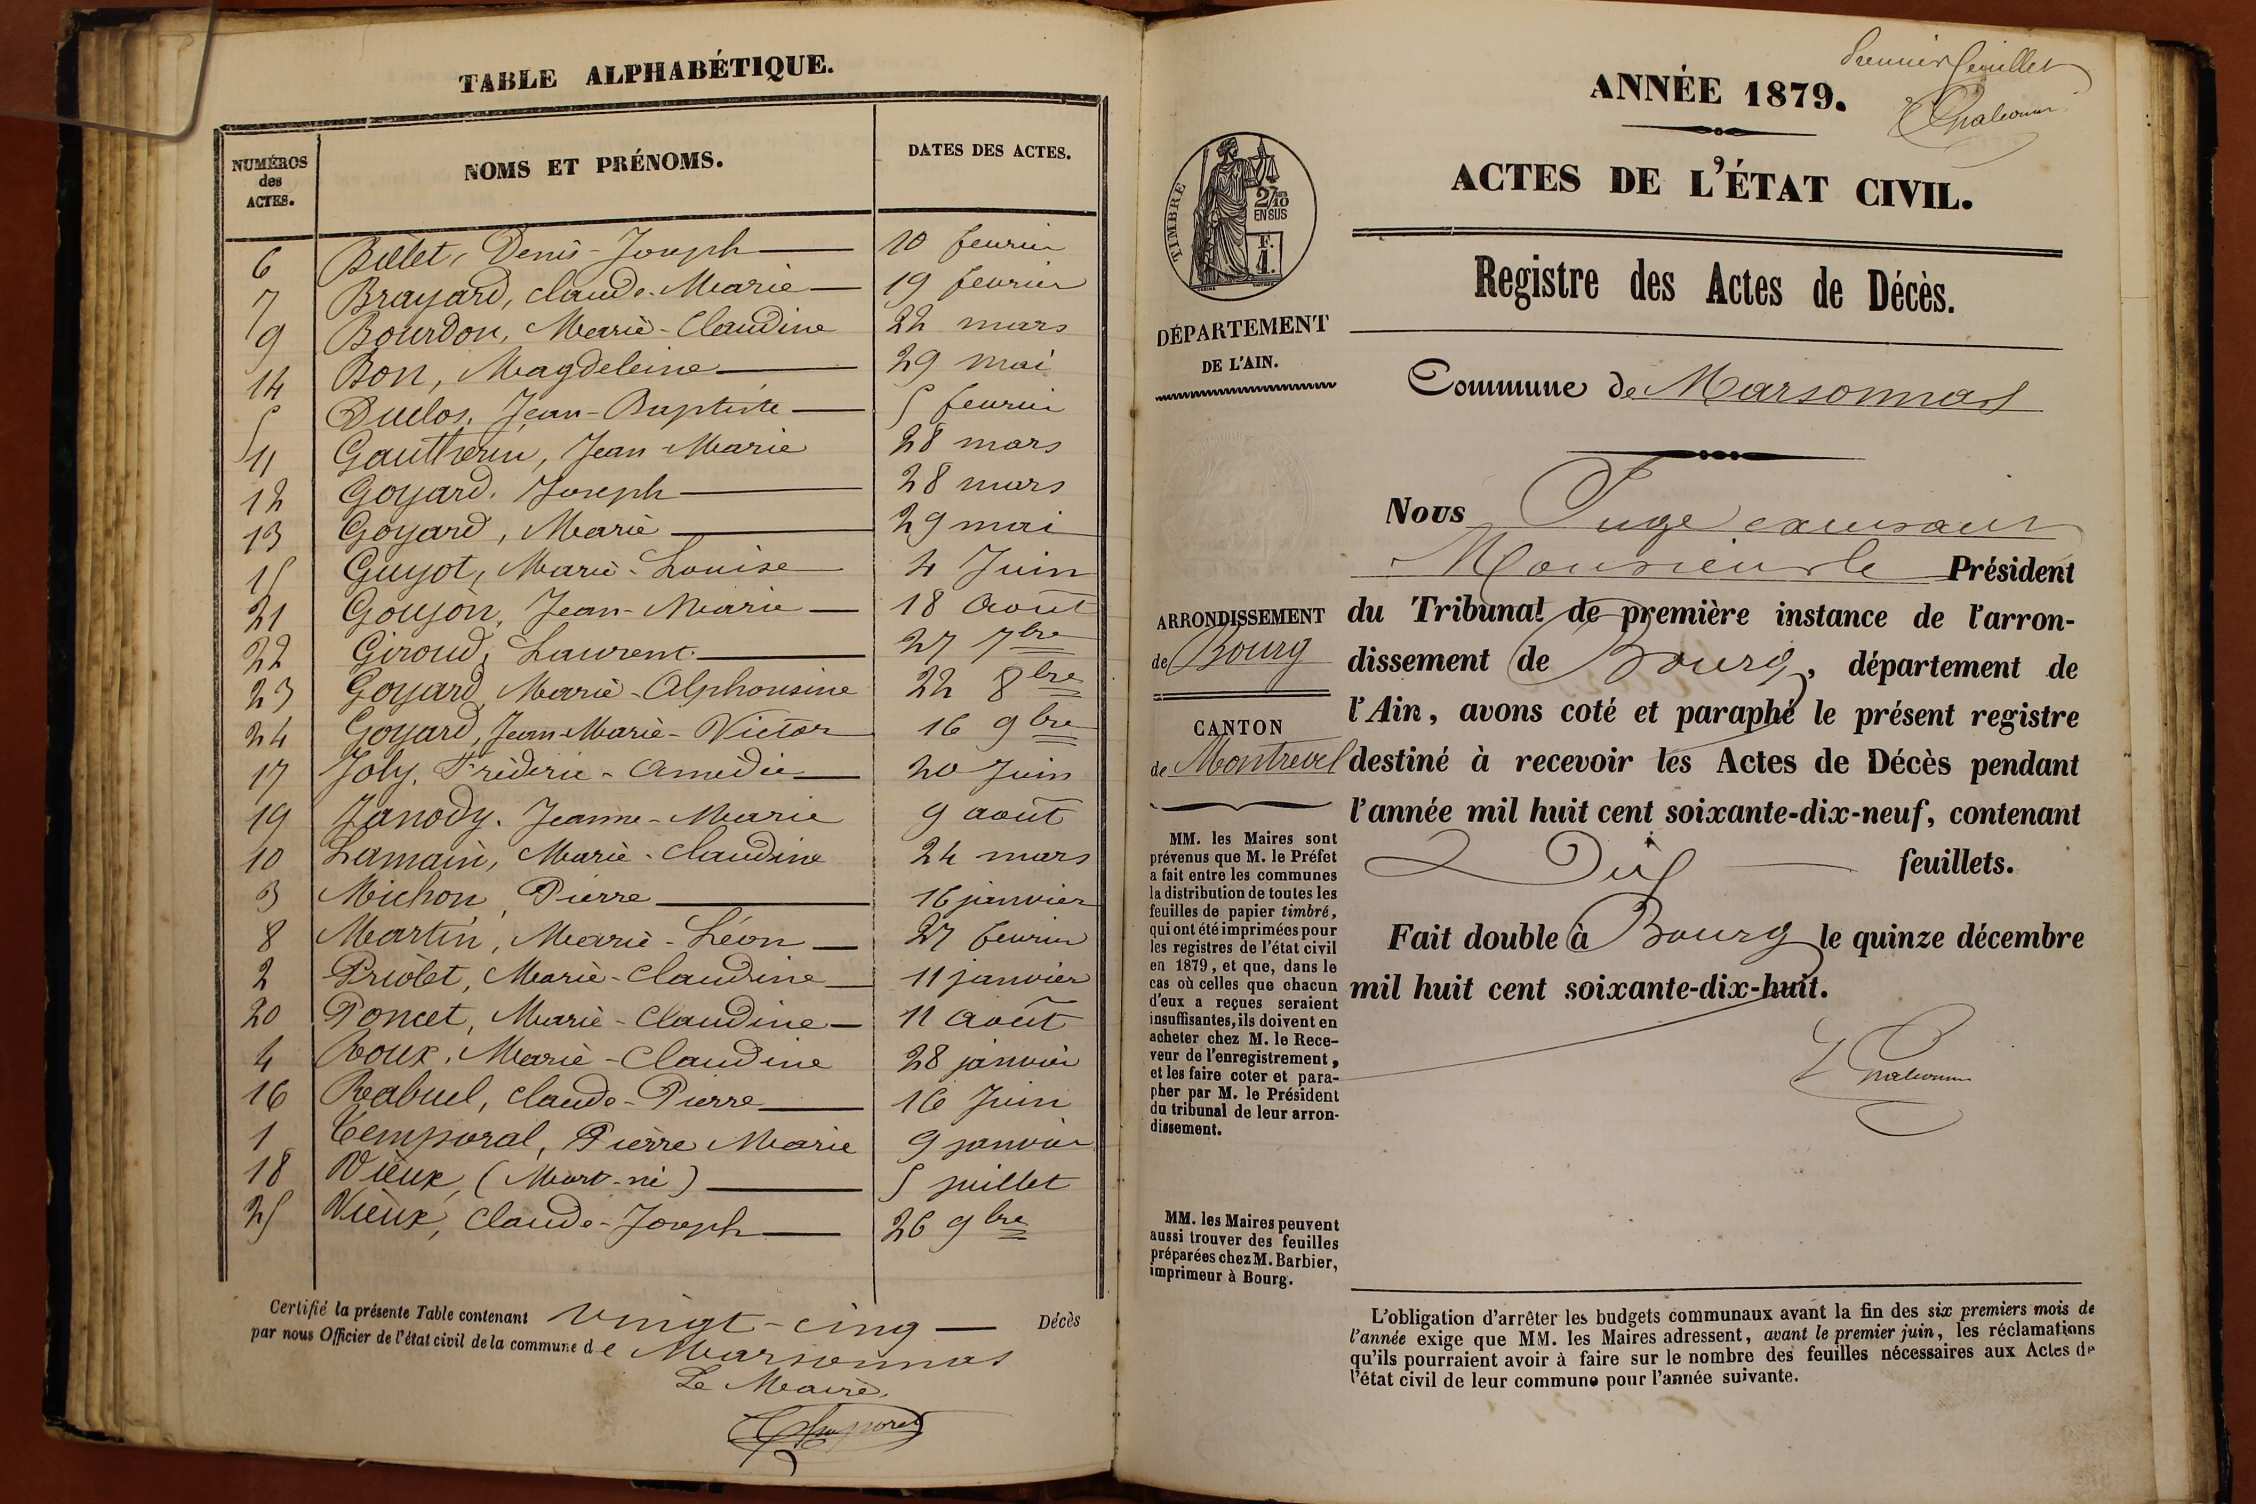 TABLE ALPHABÉTIQUE.
NUMÉROS des ACTES.
NOMS ET PRÉNOMS.
DATES DES ACTES.
6 Billet, Denis-Joseph 10 feurier
7 Brayard, Claude-Marie 19 feurier
9 Bourdon, Marie-Claudine 22 mars
14 Bon, Magdeleine 29 mai
5 Duclos, Jean-Baptiste 5 feurier
11 Gautherin, Jean-Marie 28 mars
12 Goyard, Joseph 28 mars
13 Goyard, Marie 29 mai
15 Guyot, Marie-Louise 4 Juin
21 Goujon, Jean-Marie 18 août
22 Giroud, Laurent 27 7bre
23 Goyard, Marie-Alphonsine 22 8bre
24 Goyard, Jean-Marie-Victor 16 9bre
17 Joly, Fréderic-Amédée 20 Juin
19 Janody, Jeanne-Marie 9 août
10 Lamain, Marie-Claudine 24 mars
3 Michon, Pierre 16 janvier
8 Martin, Marie-Léon 27 feurier
2 Priolet, Marie-Claudine 11 janvier
20 Poncet, Marie-Claudine 11 août
4 Roux, Marie-Claudine 28 janvier
16 Rabuel, Claude-Pierre 16 Juin
1 Temporal, Pierre Marie 9 janvier
18 Vieux, (Mort-né) 5 juillet
25 Vieux, Claude-Joseph 26 9bre
Certifié la présente Table contenant vingt-cinq Décès
par nous Officier de l'état civil de la commune de Marsonnas
Le Maire,
Premier feuillet
ANNÉE 1879.
ACTES DE L'ÉTAT CIVIL.
Registre des Actes de Décès.
Commune de Marsonnas
TIMBRE
2/10
EN SUS
F.
1.
DÉPARTEMENT
DE L'AIN.
ARRONDISSEMENT
de Bourg
CANTON
de Montrevel
MM. les Maires sont
prévenus que M. le Préfet
a fait entre les communes
la distribution de toutes les
feuilles de papier timbré,
qui ont été imprimées pour
les registres de l'état civil
en 1879, et que, dans le
cas où celles que chacun
d'eux a reçues seraient
insuffisantes, ils doivent en
acheter chez M. le Rece-
veur de l'enregistrement,
et les faire coter et para-
pher par M. le Président
du tribunal de leur arron-
dissement.
MM. les Maires peuvent
aussi trouver des feuilles
préparées chez M. Barbier,
imprimeur à Bourg.
Nous Juge
Monsieur le Président
du Tribunal de première instance de l'arron-
dissement de Bourg, département de
l'Ain, avons coté et paraphé le présent registre
destiné à recevoir les Actes de Décès pendant
l'année mil huit cent soixante-dix-neuf, contenant
Dix feuillets.
Fait double à Bourg le quinze décembre
mil huit cent soixante-dix-huit.
L'obligation d'arrêter les budgets communaux avant la fin des six premiers mois de
l'année exige que MM. les Maires adressent, avant le premier juin, les réclamations
qu'ils pourraient avoir à faire sur le nombre des feuilles nécessaires aux Actes de
l'état civil de leur commune pour l'année suivante.